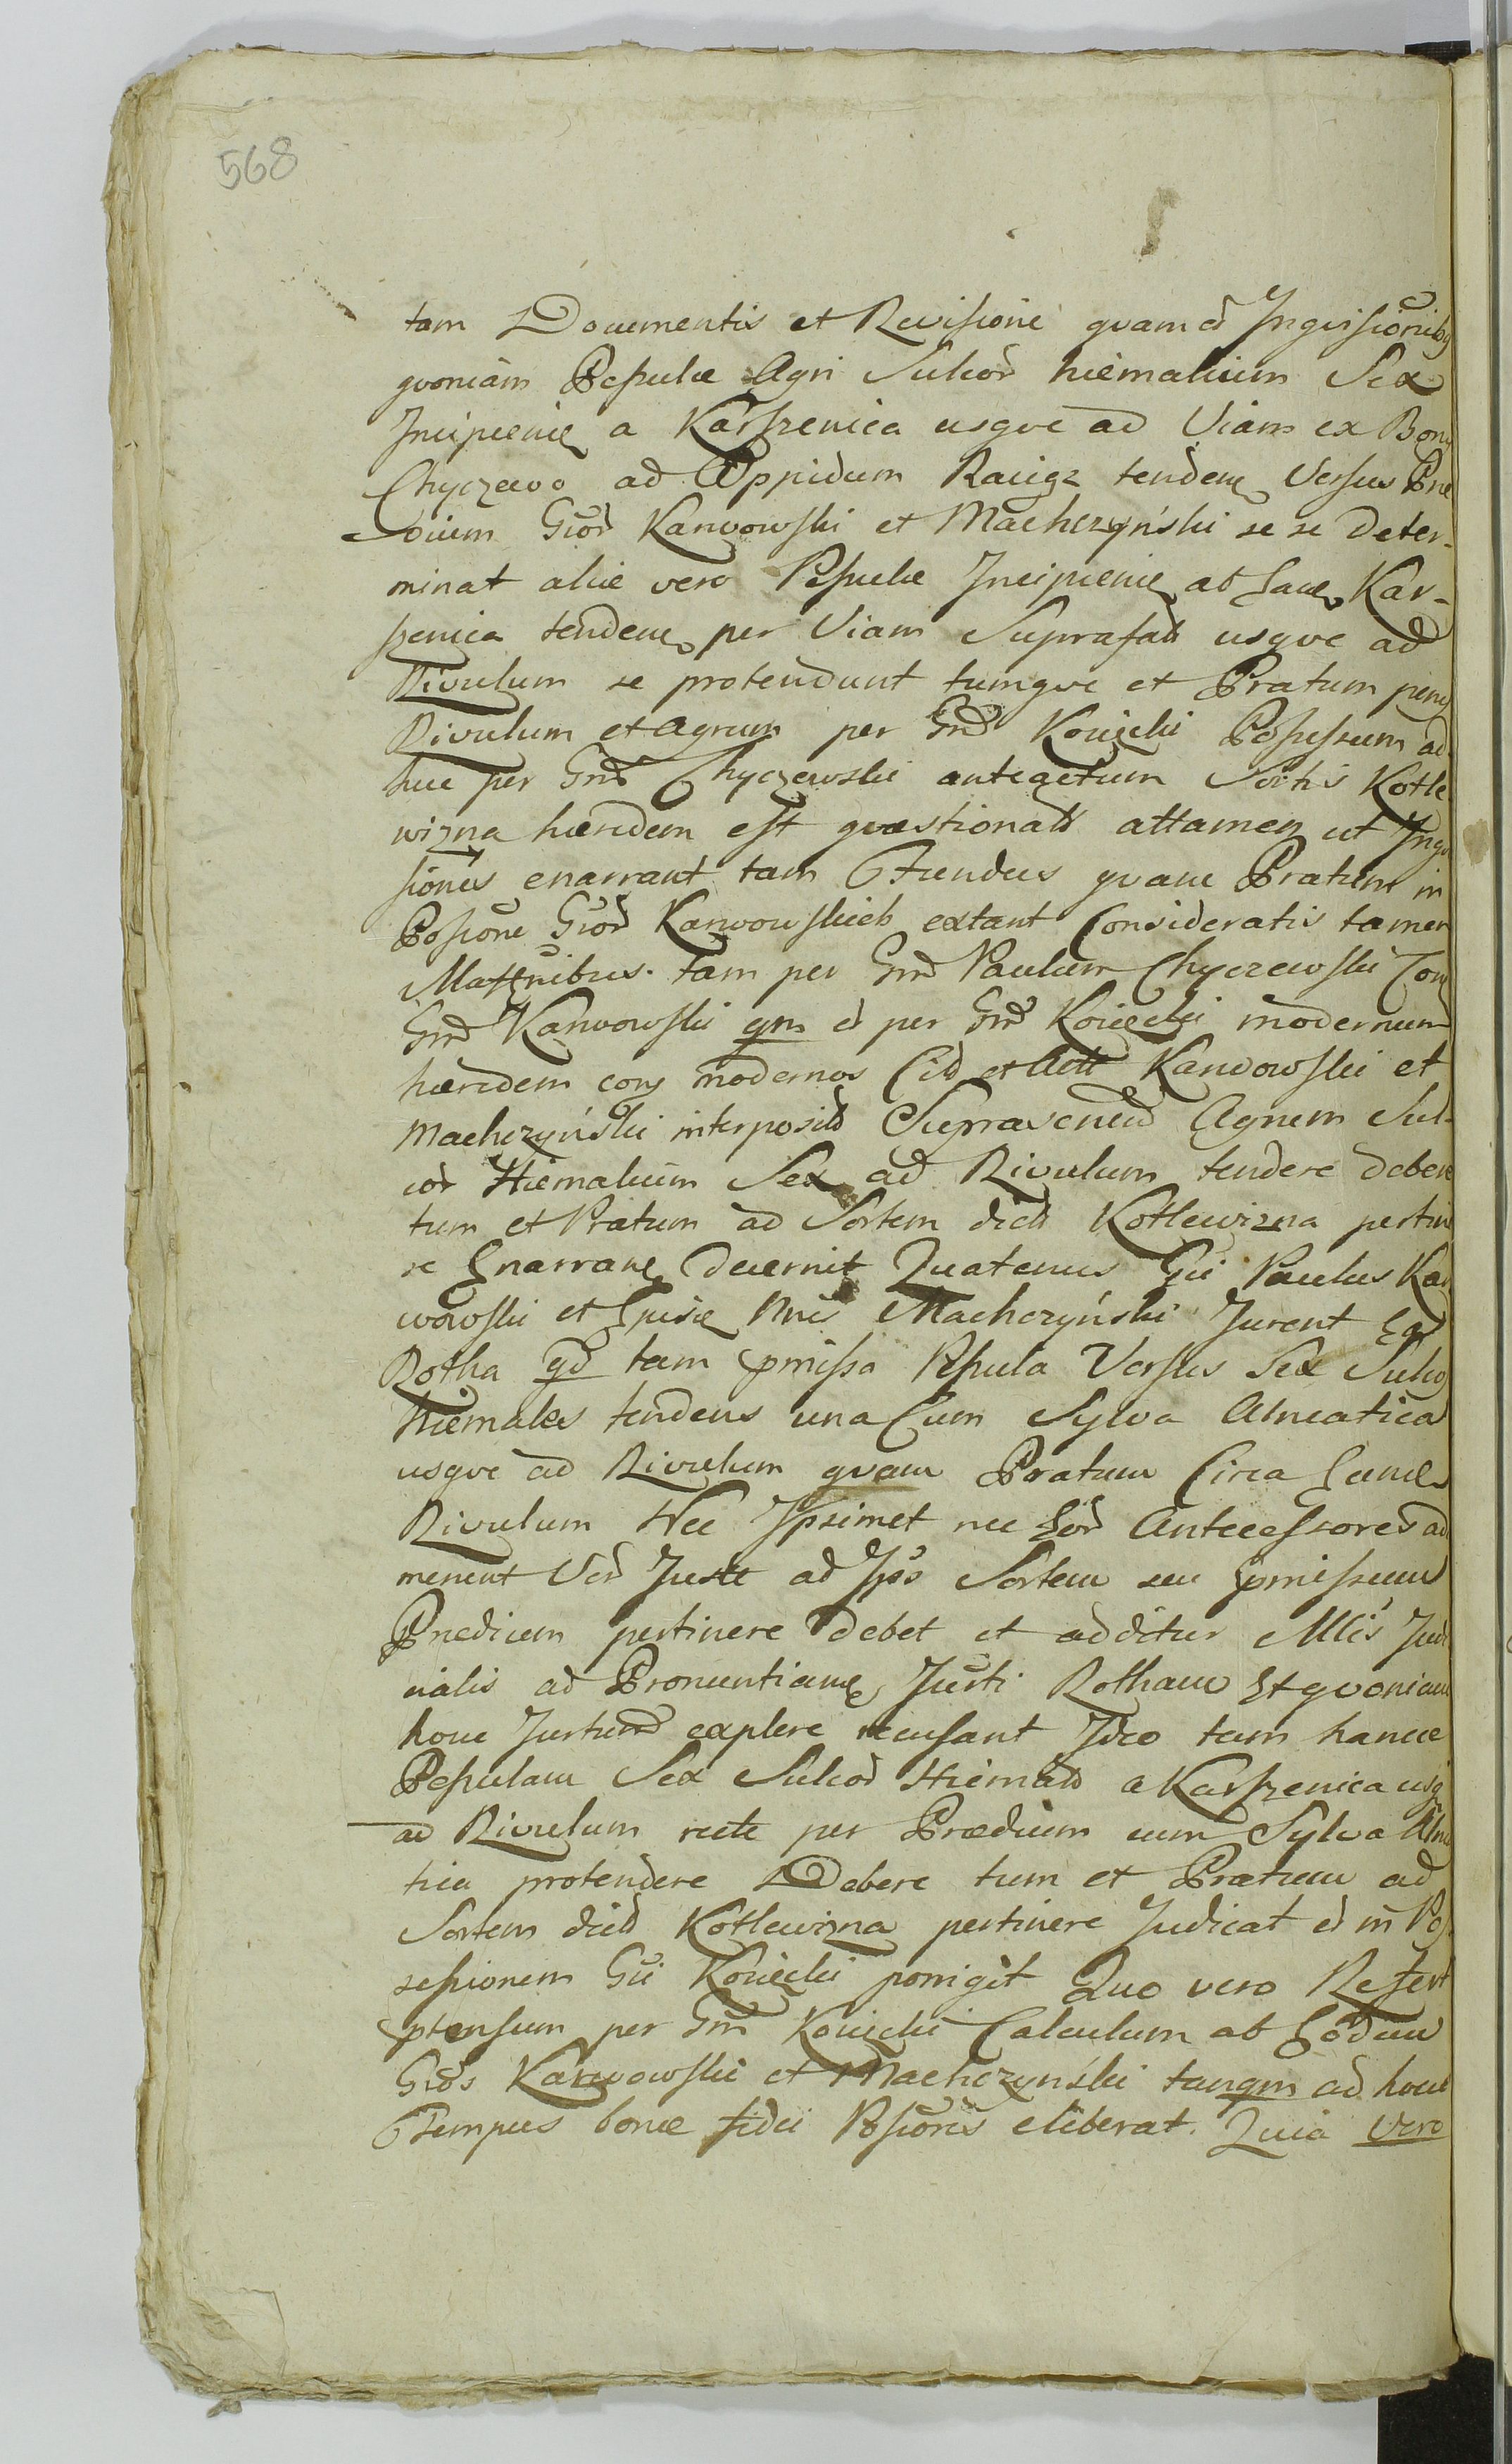 568
tam Documentis et Revisione quam et Inquisiōnibq
quoniam Resulæ Agri Sulcor hiemalium Sex
Incipiene a Karszenica usque ad Viam ex Bonis
Chyczewo ad Oppidum Raiigz tendene Versus Præ
dium Gror Karwowski et Machczyński se se deter-
minat aliæ vero Resulæ Incipiene ab Eadem Kar-
szenica tendene per Viam Suprafatt usque ad
Rivulum se protendunt tumque et Pratum penes
Rivulum et Agrum per Gnd Kowicki Possessum ad
huc per Gnd Chyczewski antegetum Sortis Kotle
wizna hæredem est quæstionatt attamen ut Inqui
siones enarrant tam Fundus quam Pratum in
Possione Gror Karwowskich extant Consideratis tamen
tam per Gnd Paulum Chyczewski Con
Gnd Karwowski qm et per Gnd Kowicki modernum
hæredem con modernos Citt et Att Karwowski et
Machczyński interposith Agrum Sul-
cor Hiemalium Sex ad Rivulum tendere debere
tum et Pratum ad Sortem dict Kotlewizna pertine
re Enarrane decernit Quatenus Gii Paulus Kar
wowski et Mris Machczyński Jurent Ea
Rotha qd tam pmissa Resula Versus Sex Sulcos
hiemales tendens una Cum Sylva Alneatica
usque ad Rivulum quam Pratum Circa Eund
Rivulum Nec Ipsimet nec Eor Antecessores ad
Juste ad Ips Sortem seu pmissum
Prædium pertinere debet et additur Mlis Judi
cialis ad Pronuntiane Justi Rotham Et quoniam
houe explere recusant Ideo tam hance
Resulam Sex Sulcor Hiemal a Karszenica usq
ad Rivulum recte per Prædium cum Sylva Alnea
tica protendere Debere tum et Pratum ad
Sortem dict Kotlewizna pertinere Judicat et in Pos
sessionem Gii Kowicki porrigit Quo vero Refert
ptensum per Gnd Kowicki Calculum ab Eodem
Gros Karwowski et Machczyński tanqm ad houe
Tempus bonæ fidei Possores eliberat. Quia Vero